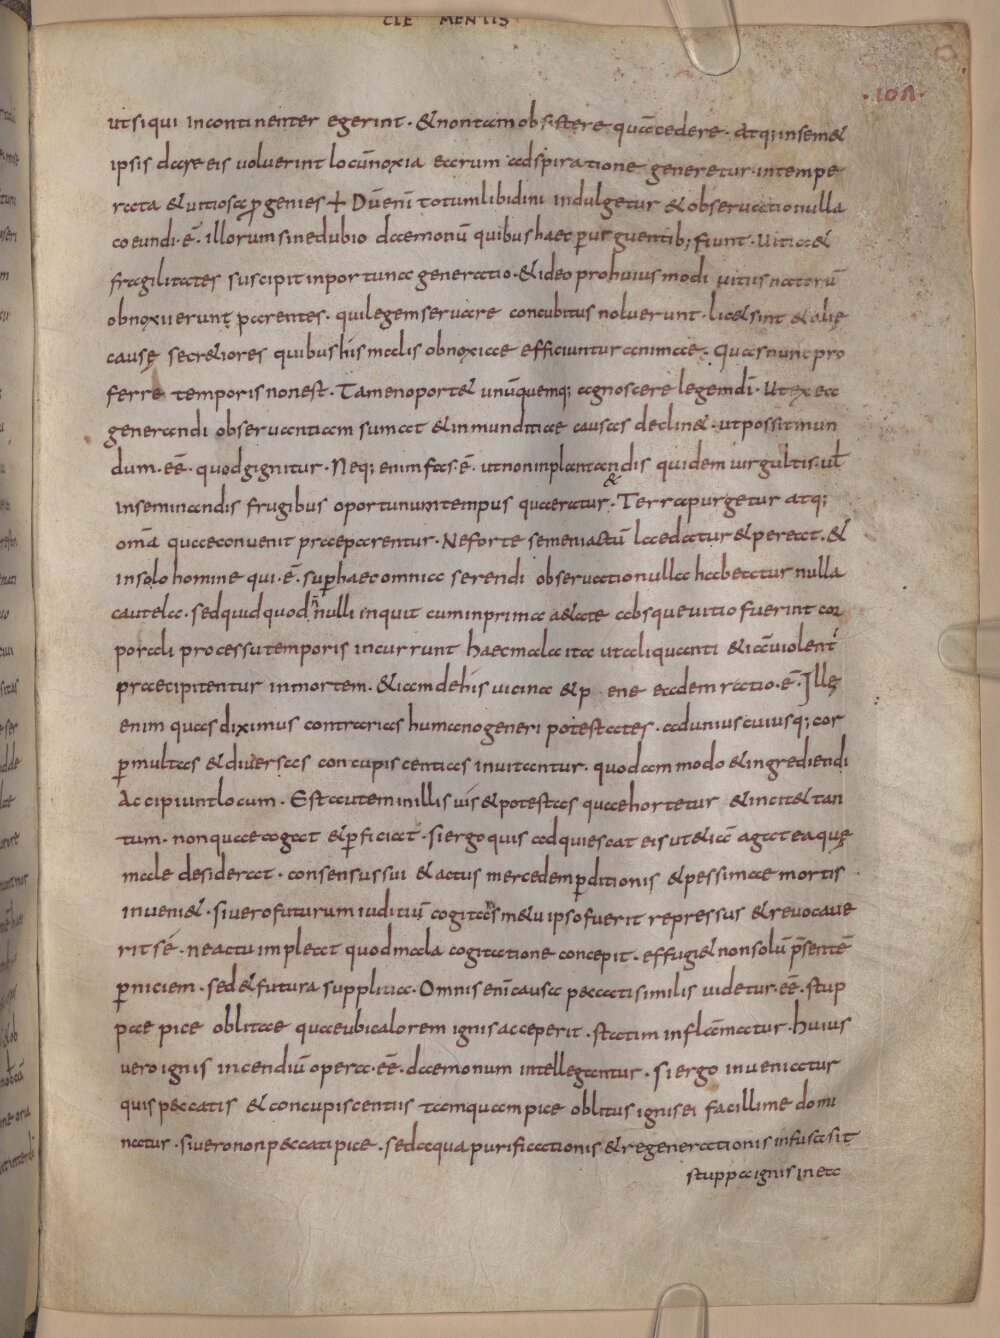 CLE MENTIS
·101·
ut si qui incontinenter egerint · & non tam obsistere quā cedere · atq; insem&
ipsis daxe eis voluerint locū noxia earum adspiratione generetur · intempe
rata & uitiosa ꝓgenies + Dū enī totum libidini indulgetur & obseruatio nulla
coeundi · ē · illorum sine dubio daemonū quibus haec ꝑurguentib; fiunt · Uitia &
fragilitates suscipit inportuna generatio · & ideo pro huiusmodi uitiis natorū
obnoxii erunt parentes · qui legem seruare concubitus noluerunt · lic& sint & alię
causę secr&iores quibus his malis obnoxiae efficiuntur animae · Quas nunc pro
ferre temporis non est · Tamen oport& unūquemq; agnoscere legem dī · Ut ex ea
generandi obseruantiam sumat & inmunditiae causas declin& · ut possit mun
dum · eē · quod gignitur · Neq; enim fas · ē · ut non inplantandis quidem uirgultis · uł
inseminandis frugibus oportunum tempus quaeratur · & Terra purgetur atq;
omīa quae conueniт praeparentur · Ne forte semen iactū laedatur & pereat · &
in solo homine qui · ē · suꝑ haec omnia serendi obseruatio nulla habeatur nulla
cautela · sed quid quod nñulli inquit cum in prima aetate absque uitio fuerint cor
porali processu temporis incurrunt haec mala ita ut aliquanti & iā uiolent̄
praecipitentur in mortem · & iam de his uicina & p ene eadem ratio · ē · Illę
enim quas diximus contrarias humano generi potestates · ad unius cuiusq; cor
ꝑ multas & diuersas concupiscentias inuitantur · quodam modo & ingrediendi
Accipiunt locum · Est autem in illis uis & potestas quae hortetur & incit& tan
tum · non quae cogat & ꝑficiat · si ergo quis adquiescat eis ut & iā agat ea quę
male desiderat · consensus sui & actus mercedem ꝑditionis & pessimae mortis
inueni& · si uero futurum iuditiū cogitans m&u ipso fuerit repressus & reuocaue
rit sé · ne actu impleat quod mala cogitatione concepit · effugi& non solū p̄sentē
ꝑniciem · sed & futura supplitia · Omnis enī causa peccati similis uidetur · eē · stup
pae pice oblitae quae ubi calorem ignis acceperit · statim inflāmatur · huius
uero ignis incendiū opera · eē · daemonum intellegantur · si ergo inueniatur
quis peccatis & concupiscentiis tamquam pice oblitus ignis ei facillime domi
natur · si uero non peccati pice · sed aqua purificationis & regenerationis infusa sit
stuppa ignis in ea